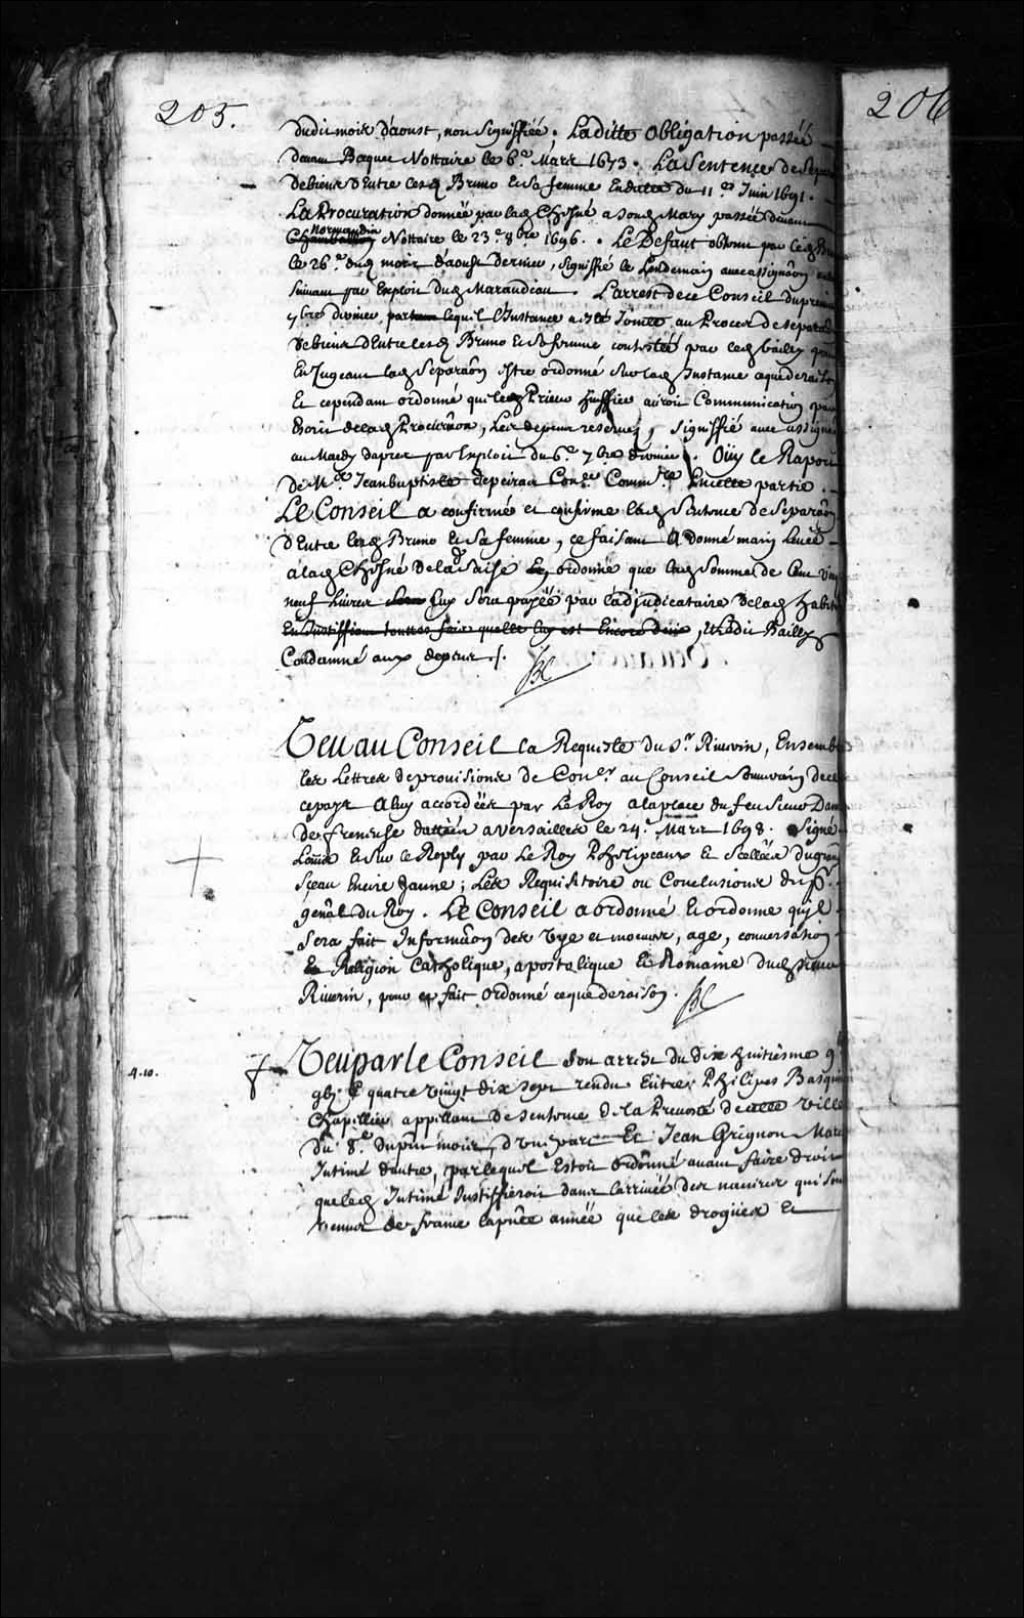 205.
206
dudit mois d'aoust, non signiffiée. Ladille obligation passéé
devant Becquet Nottaire le 6.e Mars 1673. La Sentence de Separ
de biens d'Entre lesd Bruno Et sa femme Endatte du 11.es Juin 1691.
La Procuration donnéé par lad Chesné a sond Mary passéé devant
normandin
Chambalon Nottaire le 23.e 8bre 1696. Le Defaut obtenu par led
le 26.e dud mois d'aoust dernier, signiffié le Lendemain avec assignãon
suivant par Exploit dud Marandeau. L'arrest de ce Conseil du premier
7bre dernier, par lequel l'Instance a esté Jointe au Procez de separa
de biens d'Entre lesd Bruno Et sa femme contestéé par led bailly
En Jugeant lad Separãon Estre ordonné sur lad Instance aquederaison
Et cependant ordonné que led Prieur huissier auroit Communication par
Escrit de lad Procurãon, Les depens reservez, signiffié avec assigna
au Mardy d'apres par Exploit du 6.e 7bre dernier. Oüy le Raport
De M.e Jean baptiste depeiras Con.er Comm.re Encette partie.
Le Conseil a confirmé et confirme lad Sentence de Separãon
D'Entre lesd Bruno Et sa femme, ce faisant A donné main Levéé
a lad Chesné de lad Saise Et ordonné que lad Somme de Cent vingt
neuf Livres sera Luy Sera payéé par l'adjudicataire de lad habita
En Justiffiant touttes fois quelle luy est Encore deüe, Et ledit Bailly
Condamné aux depens ./.
Veu au Conseil La Requeste du S.r Riverin, Ensemble
les Lettres de provisions de Con.er au Conseil Souverain de ce
cepays A luy accordéés par Le Roy a la place du feu Sieur Dam
de freneuse dattéés a Versailles le 24.e Mars 1698. Signé
Loüis Et sur le Reply par Le Roy Phelipeaux Et Scelléés du grand
Sceau Encire Jaune; Les Requisitoire ou Conclusions du p.r
genãl du Roy. Le Conseil a ordonné Et ordonne qu'il
sera fait Informãon des vye et moeurs, age, conversation
Et Religion Catholique, apostolique Et Romaine dud Sieur
Riverin, pour ce fait ordonné ce que de raison.
4.10.
Veu par le Conseil Son arrest du dix huitiesme 9
gbj.C quatre vingt dix sept rendu Entre Philipes Basquin
Chapellier appellant de Sentence de la Prevosté de cette Ville
du 8.e dupñt mois, d'vne part Et Jean Grignon March
Intimé d'autre, par lequel Estoit ordonné avant faire droit
que led Intimé Justiffieroit dans l'arrivéé des navires qui sont
venus de france lapñte annéé que les drogues Et